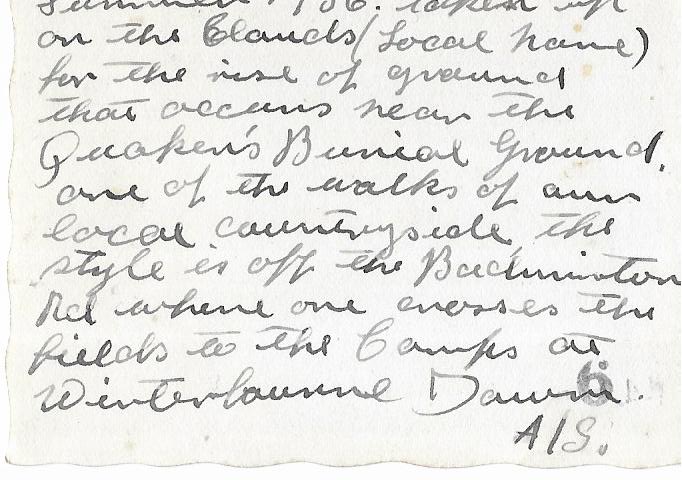 Summer 1936. taken up
on the Clouds (Local name)
for the rise of ground
that occurs near the
Quaker's Burial Ground.
one of the walks of our
local countryside, the
style is off the Badminton
Rd where one crosses the
fields to the Camps at
Winterbourne Down.
A/S.
6